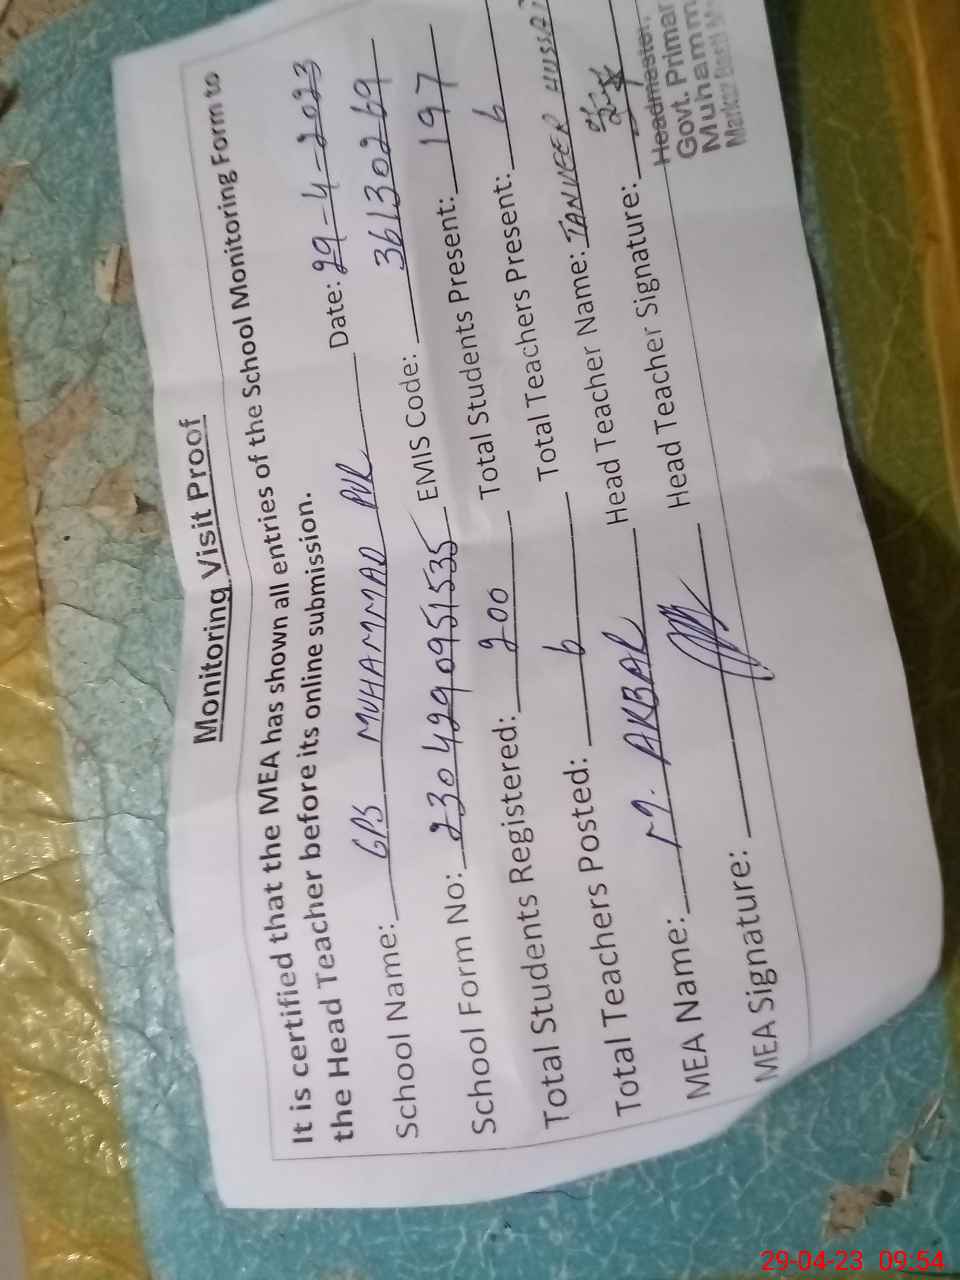 Monitoring Visit Proof
It is certified that the MEA has shown all entries of the School Monitoring Form to
the Head Teacher before its online submission.
School Name: GPS MUHAMMAD PUR Date: 29-4-2023
School Form No: 2304290951535 EMIS Code: 36130269
Total Students Registered: 200 Total Students Present: 197
Total Teachers Posted: 6 Total Teachers Present: 6
MEA Name: M. AKBAR Head Teacher Name: TANVEER HUSSAI
MEA Signature: Head Teacher Signature:
Headmaster,
Govt. Primar
Muhamm
Markaz
29-04-23 09:54